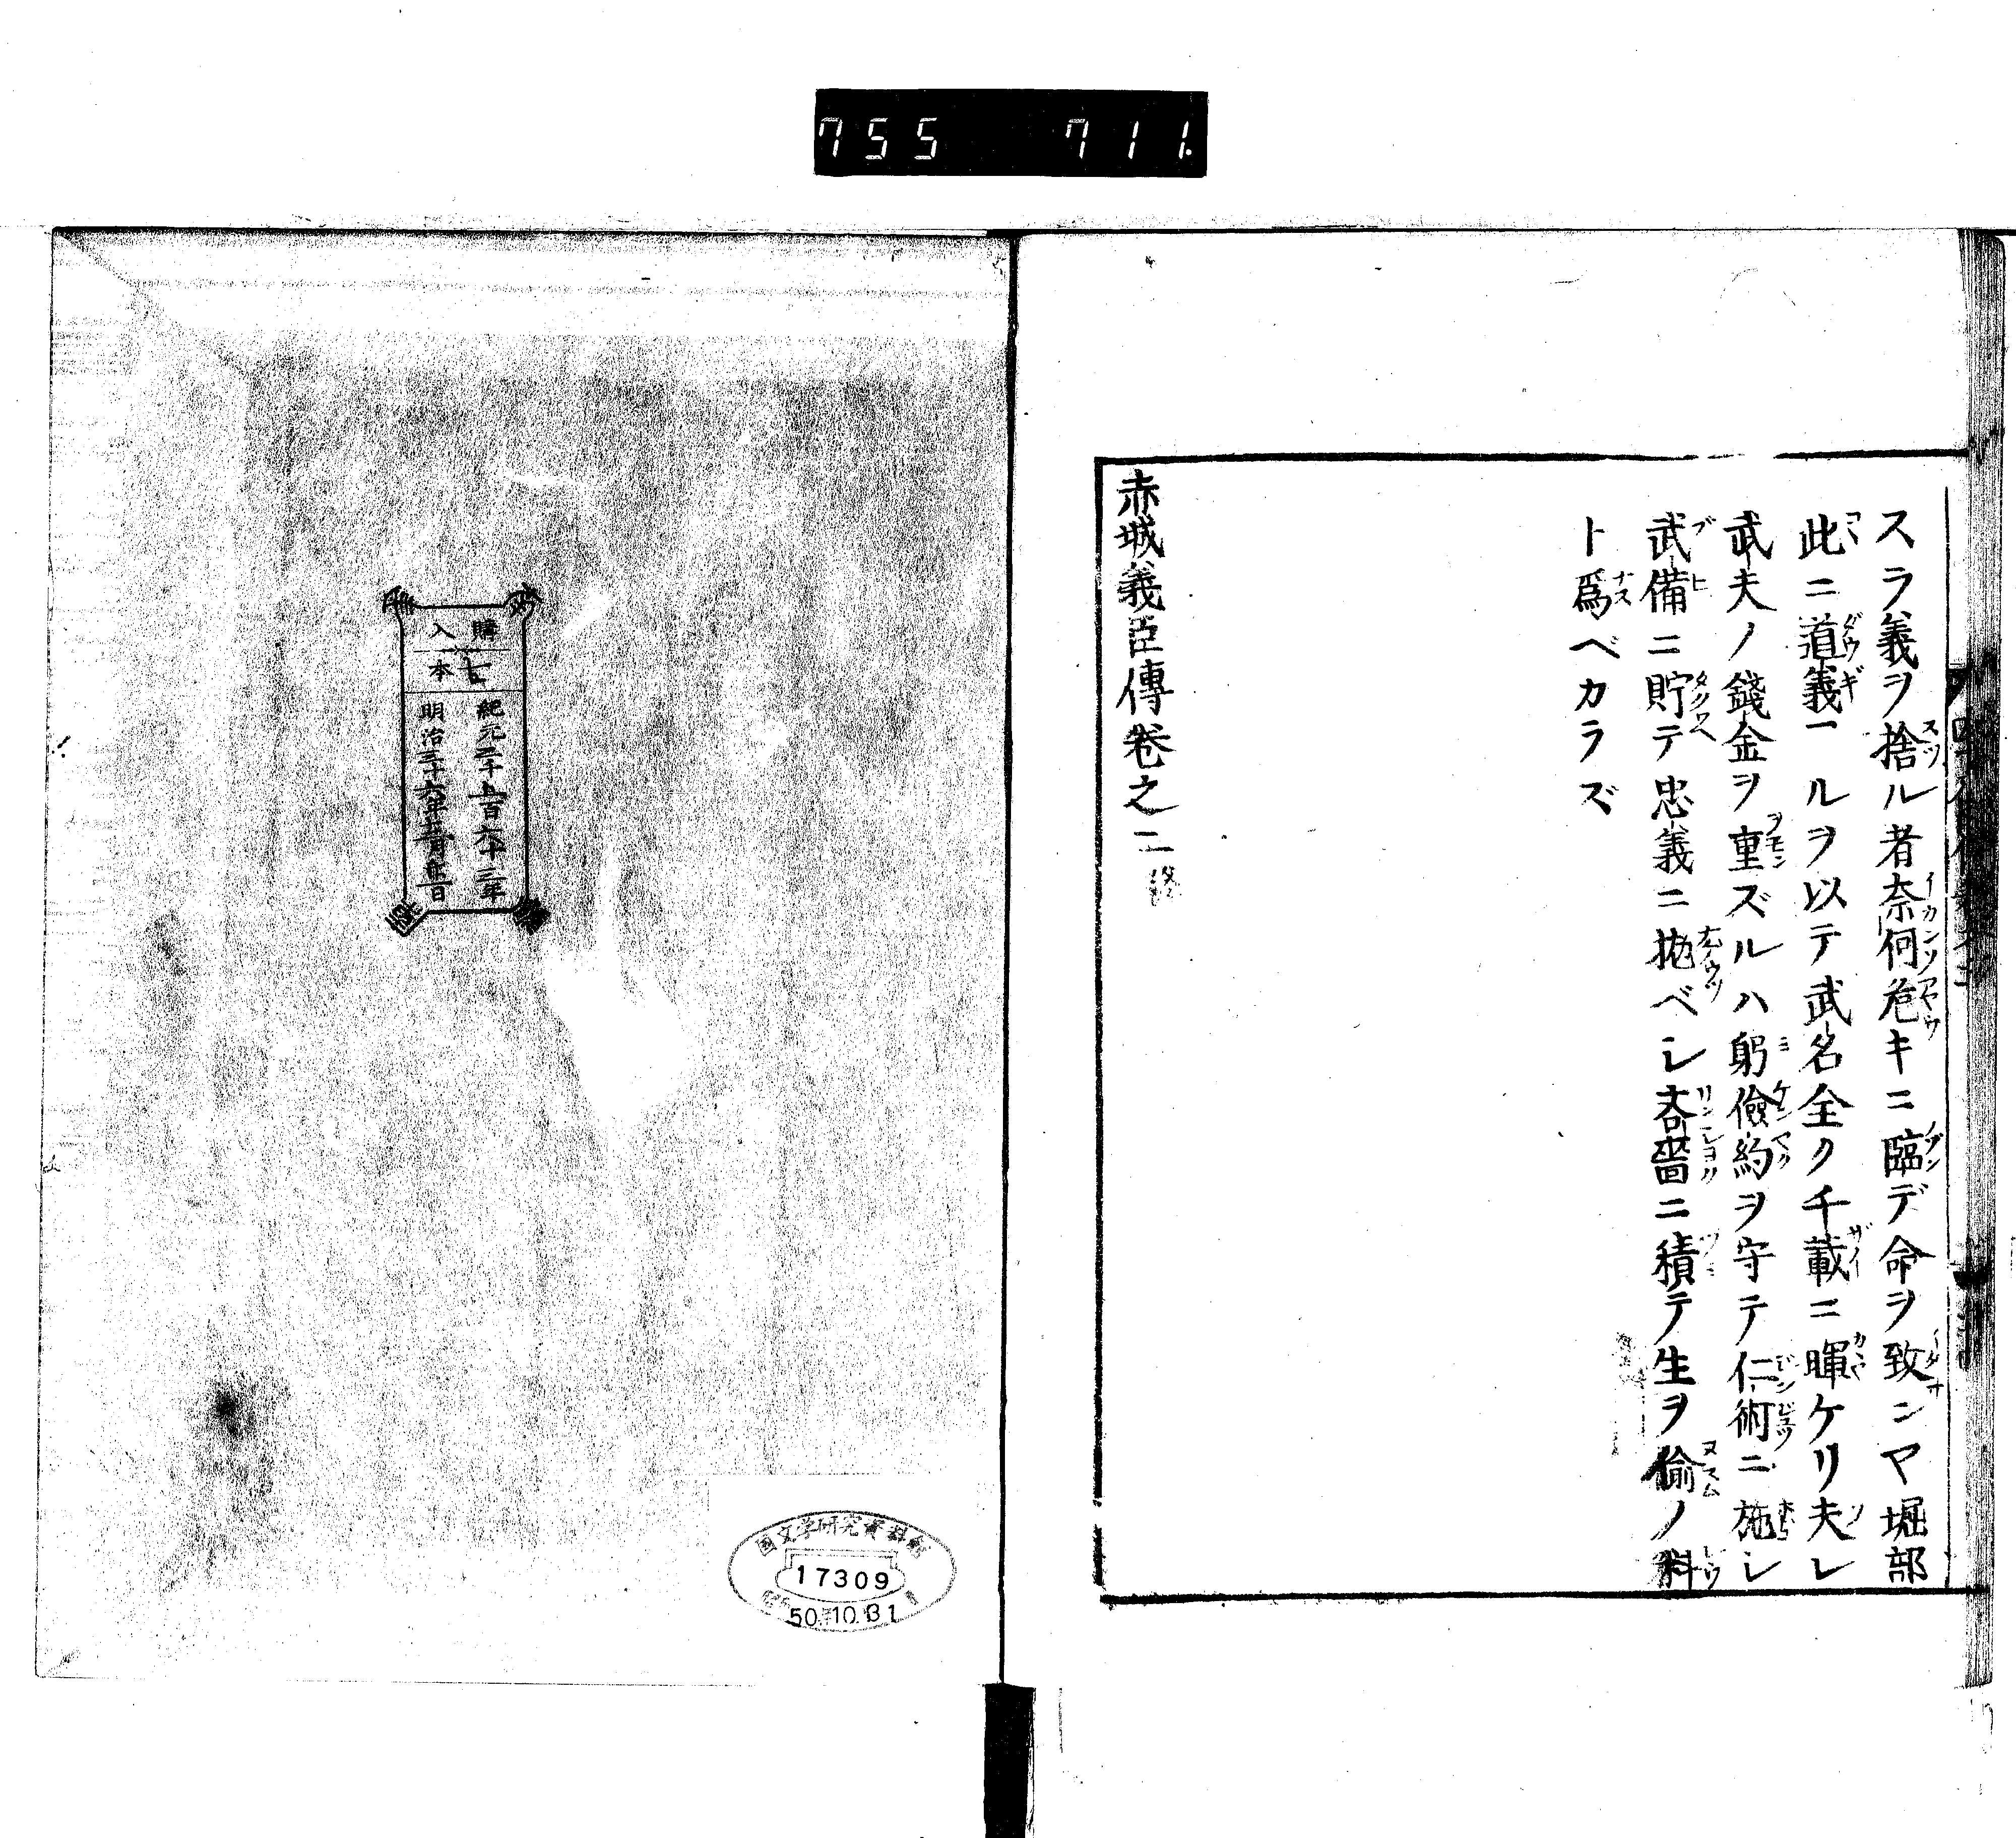 755 711.
スラ義ヲ捨ル者奈何危キニ臨デ命ヲ致ンヤ堀部
此ニ道義一ルヲ以テ武名全ク千載ニ暉ケリ夫レ
武夫ノ錢金ヲ重ズルハ躬儉約ヲ守テ仁術ニ施レ
武備ニ貯テ忠義ニ抛ベレ吝嗇ニ積テ生ヲ偷ノ料
ト爲ベカラズ
赤城義臣傳卷之二終
購入
七本
紀元二千五百六十三年
明治三十六年
國文學研究資料館
17309
50.10.31